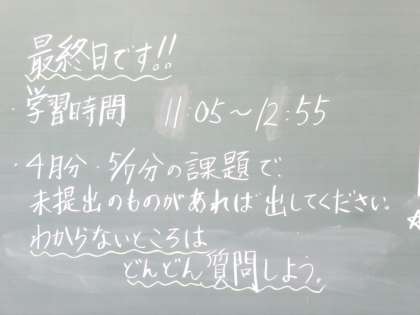 最終日です!!
・学習時間 11:05～12:55
・4月分・5/7分の課題で
未提出のものがあれば出してください。
わからないところは
どんどん質問しよう。